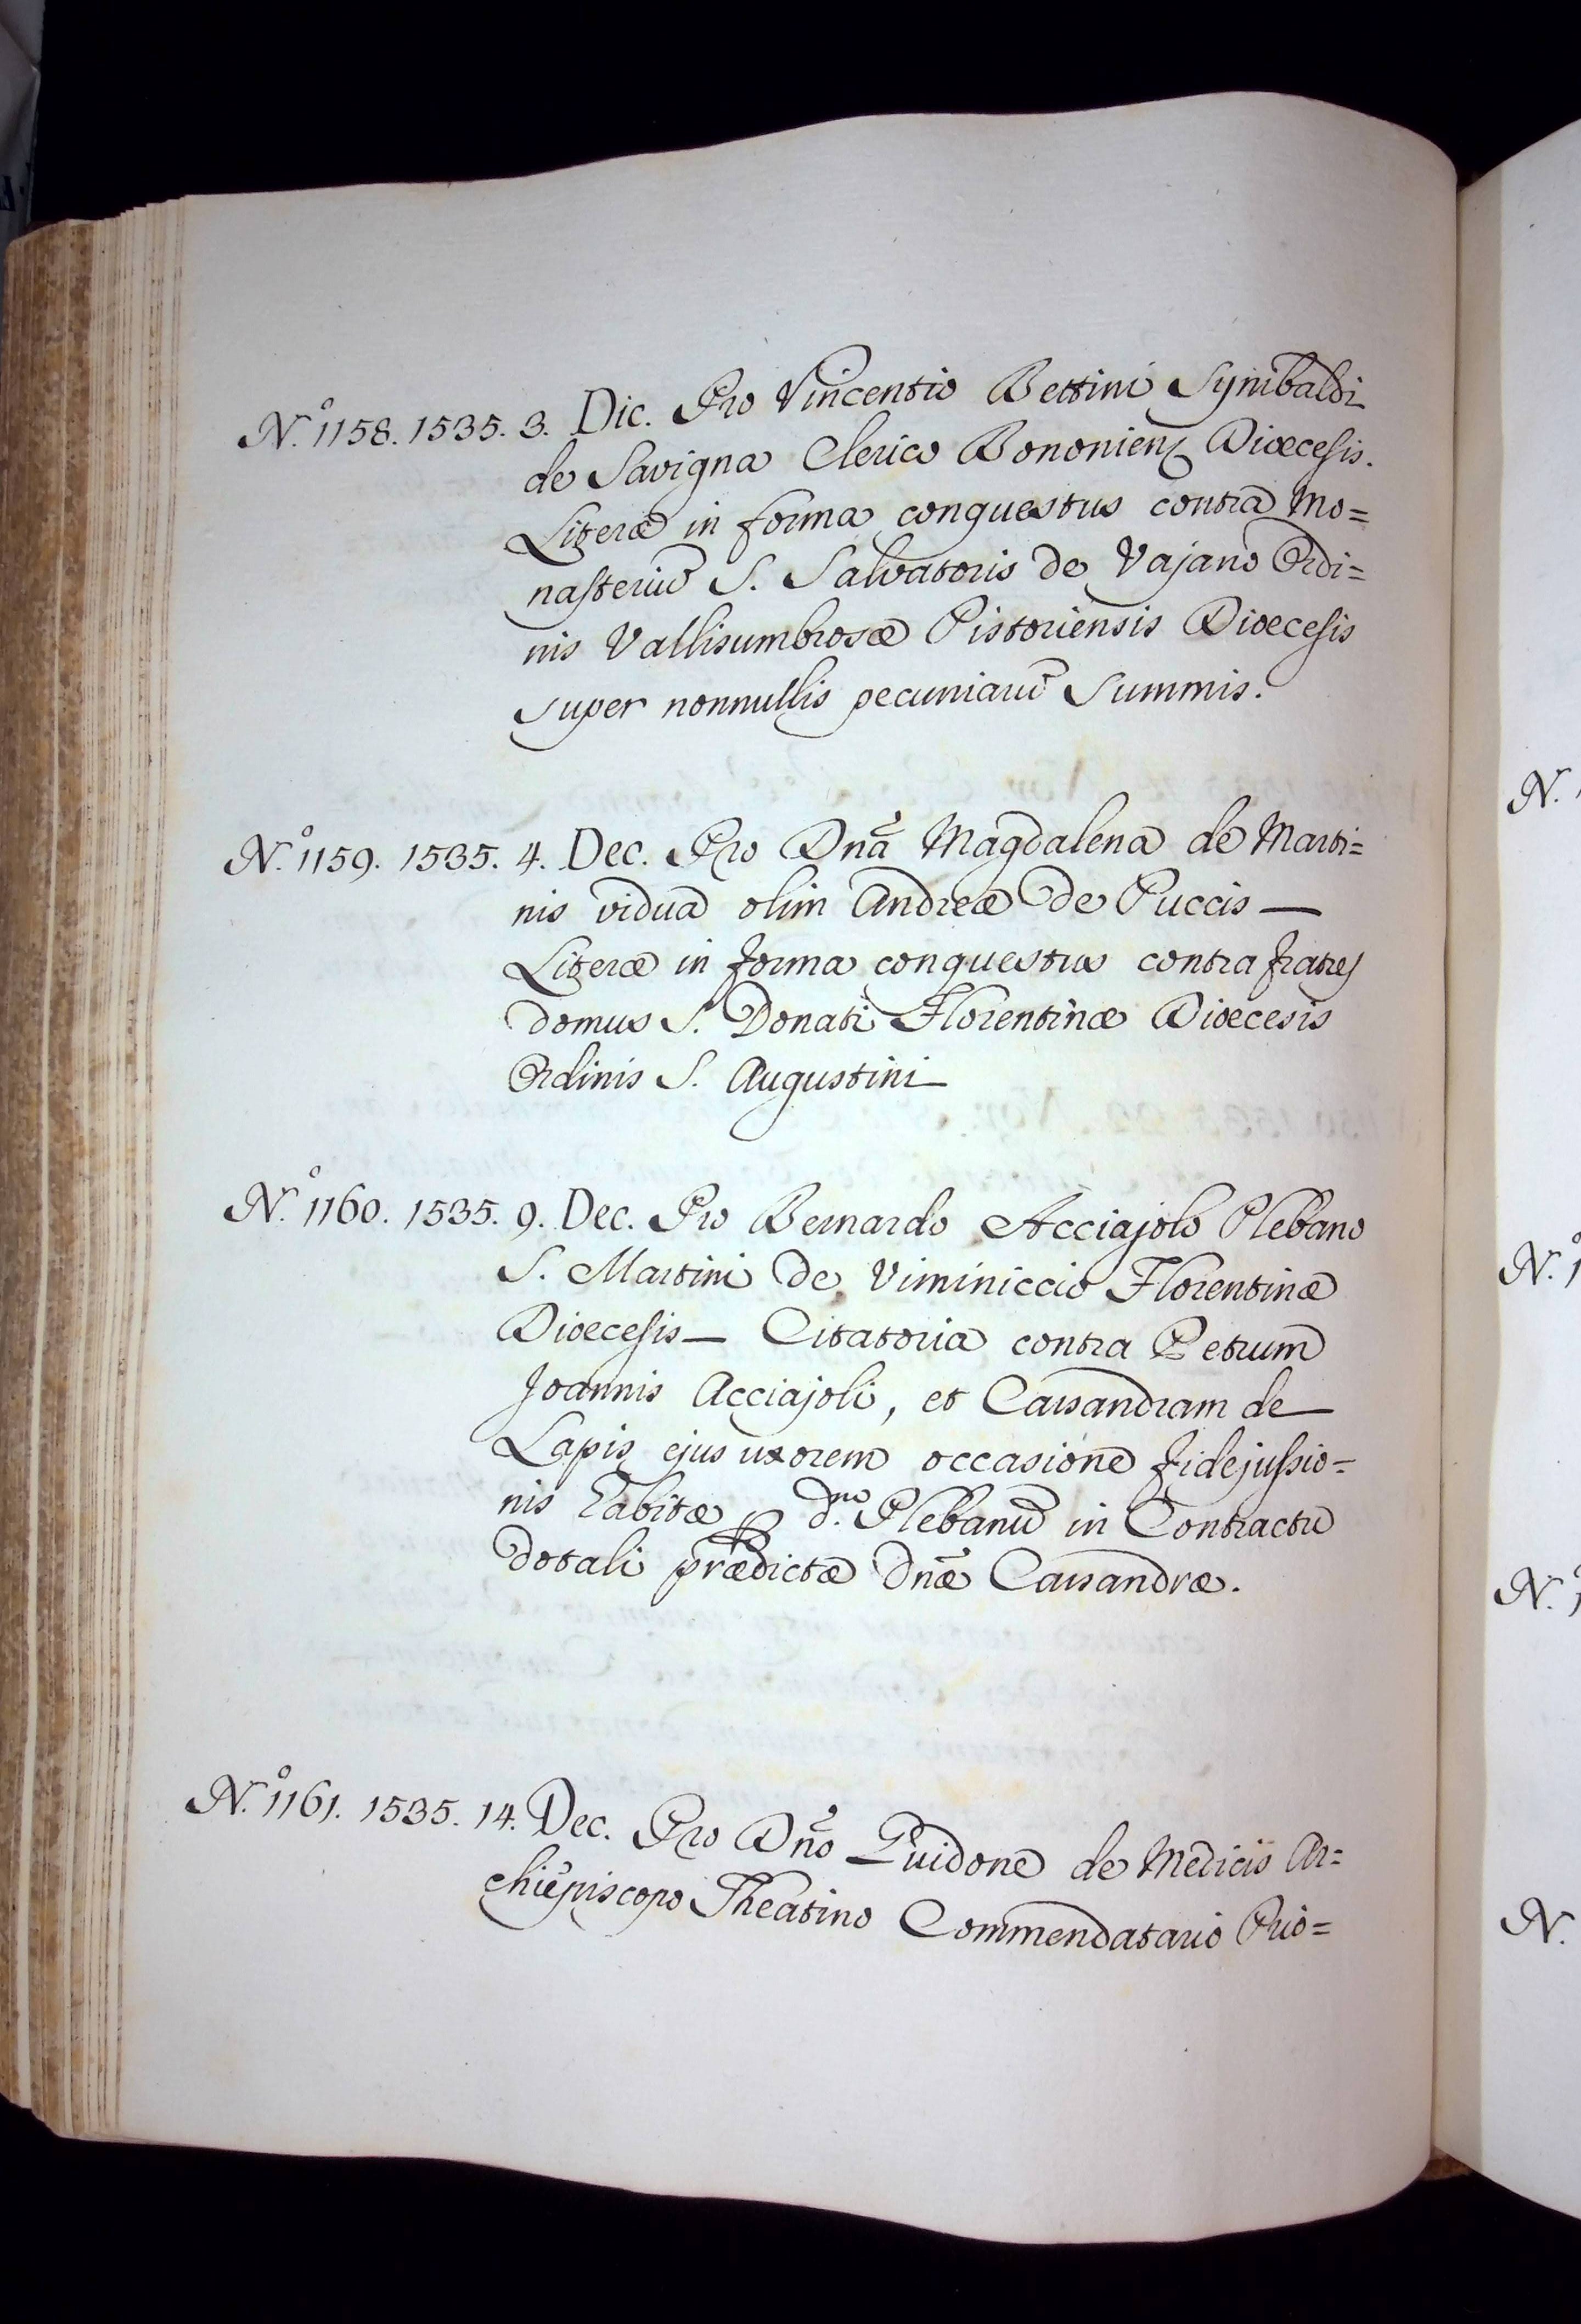 N.º 1158. 1535. 3. Dic. Pro Vincentio Bettini Synibaldi
de Savigna Clerico Bononiens Diœcesis.
Literæ in forma conquestus contra Mo=
nasteriũ S. Salvatoris de Vajano Ordi=
nis Vallisumbrosæ Pistoriensis Diœcesis
super nonnullis pecuniarũ Summis.
N.º 1159. 1535. 4. Dec. Pro Dñã Magdalena de Marti=
nis vidua olim Andreæ de Puccis —
Literæ in forma conquestus contra fratres
domus S. Donati Florentinæ Diœcesis
Ordinis S. Augustini —
N.º 1160. 1535. 9. Dec. Pro Bernardo Acciajolo Plebano
S. Martini de Viminiccio Florentinæ
Diœcesis — Citatoria contra Petrum
Joannis Acciajoli, et Cassandram de
Lapis ejus uxorem occasione fidejussio=
nis habitæ ꝑ d.ᵐ Plebanũ in Contractu
dotali prædictæ Dñæ Cassandræ.
N.º 1161. 1535. 14. Dec. Pro Dño Guidone de Medicis Ar=
chiepiscopo Theatino Commendatario Prio=
N.
N.º 1
N.º 1
N.